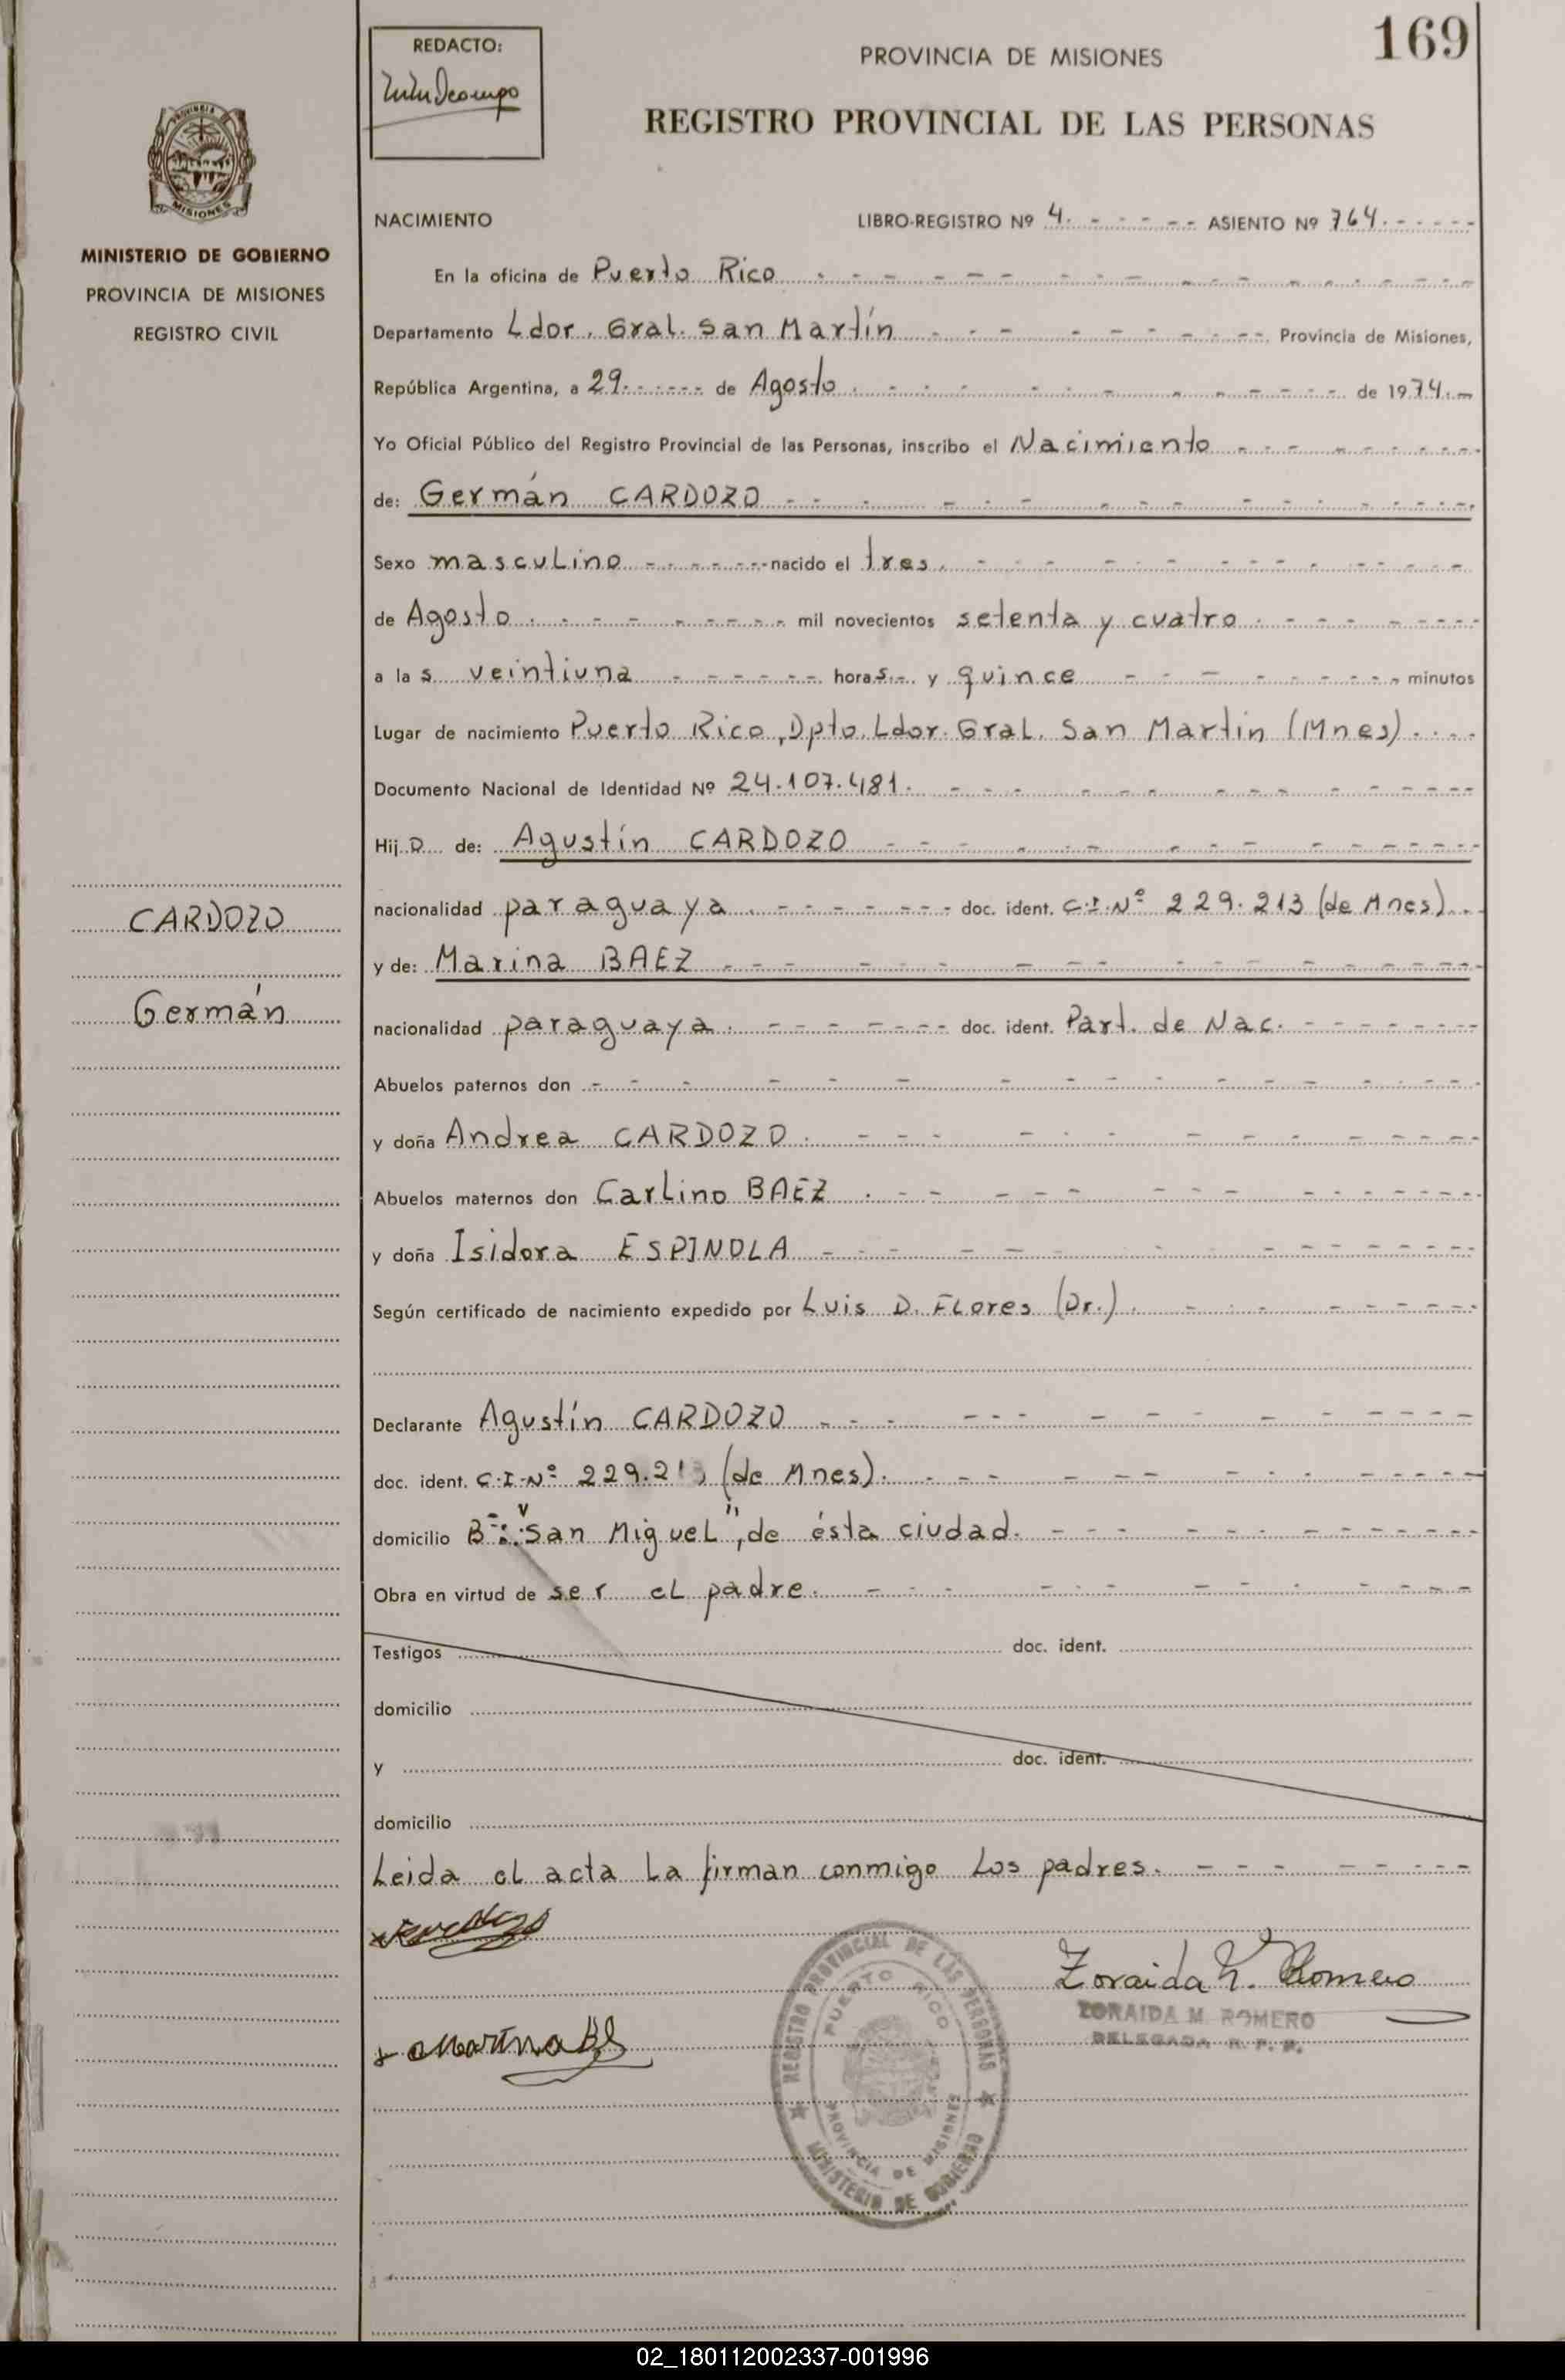 169
REDACTO:
PROVINCIA DE MISIONES
REGISTRO PROVINCIAL DE LAS PERSONAS
MISIONES
MINISTERIO DE GOBIERNO
PROVINCIA DE MISIONES
REGISTRO CIVIL
NACIMIENTO LIBRO-REGISTRO Nº 4. ASIENTO Nº 764.
En la oficina de Puerto Rico
Departamento Ldor. Gral. San Martín Provincia de Misiones,
República Argentina, a 29 de Agosto de 1974.
Yo Oficial Público del Registro Provincial de las Personas, inscribo el Nacimiento
de: Germán CARDOZO
Sexo masculino nacido el tres
de Agosto mil novecientos setenta y cuatro
a las veintiuna horas y quince minutos
Lugar de nacimiento Puerto Rico, Dpto. Ldor. Gral. San Martin (Mnes)
Documento Nacional de Identidad Nº 24.107.481.
Hijo de: Agustín CARDOZO
nacionalidad paraguaya doc. ident. C.I.Nº 229.213 (de Mnes)
y de: Marina BAEZ
nacionalidad paraguaya. doc. ident. Part. de Nac.
Abuelos paternos don
y doña Andrea CARDOZO.
Abuelos maternos don Carlino BAEZ
y doña Isidora ESPINOLA
Según certificado de nacimiento expedido por Luis D. FLores (Dr.)
Declarante Agustín CARDOZO
doc. ident. C.I.Nº 229.213 (de Mnes).
domicilio Bº: "San MigueL", de ésta ciudad.
Obra en virtud de ser eL padre.
Testigos doc. ident.
domicilio
y doc. ident.
domicilio
Leida eL acta La firman conmigo Los padres.
CARDOZO
Germán
Zoraida M. Romero
ZORAIDA M. ROMERO
DELEGADA R. P. P.
Marina
REGISTRO PROVINCIAL DE LAS PERSONAS
PUERTO RICO
PROVINCIA DE MISIONES
MINISTERIO DE GOBIERNO
02_180112002337-001996